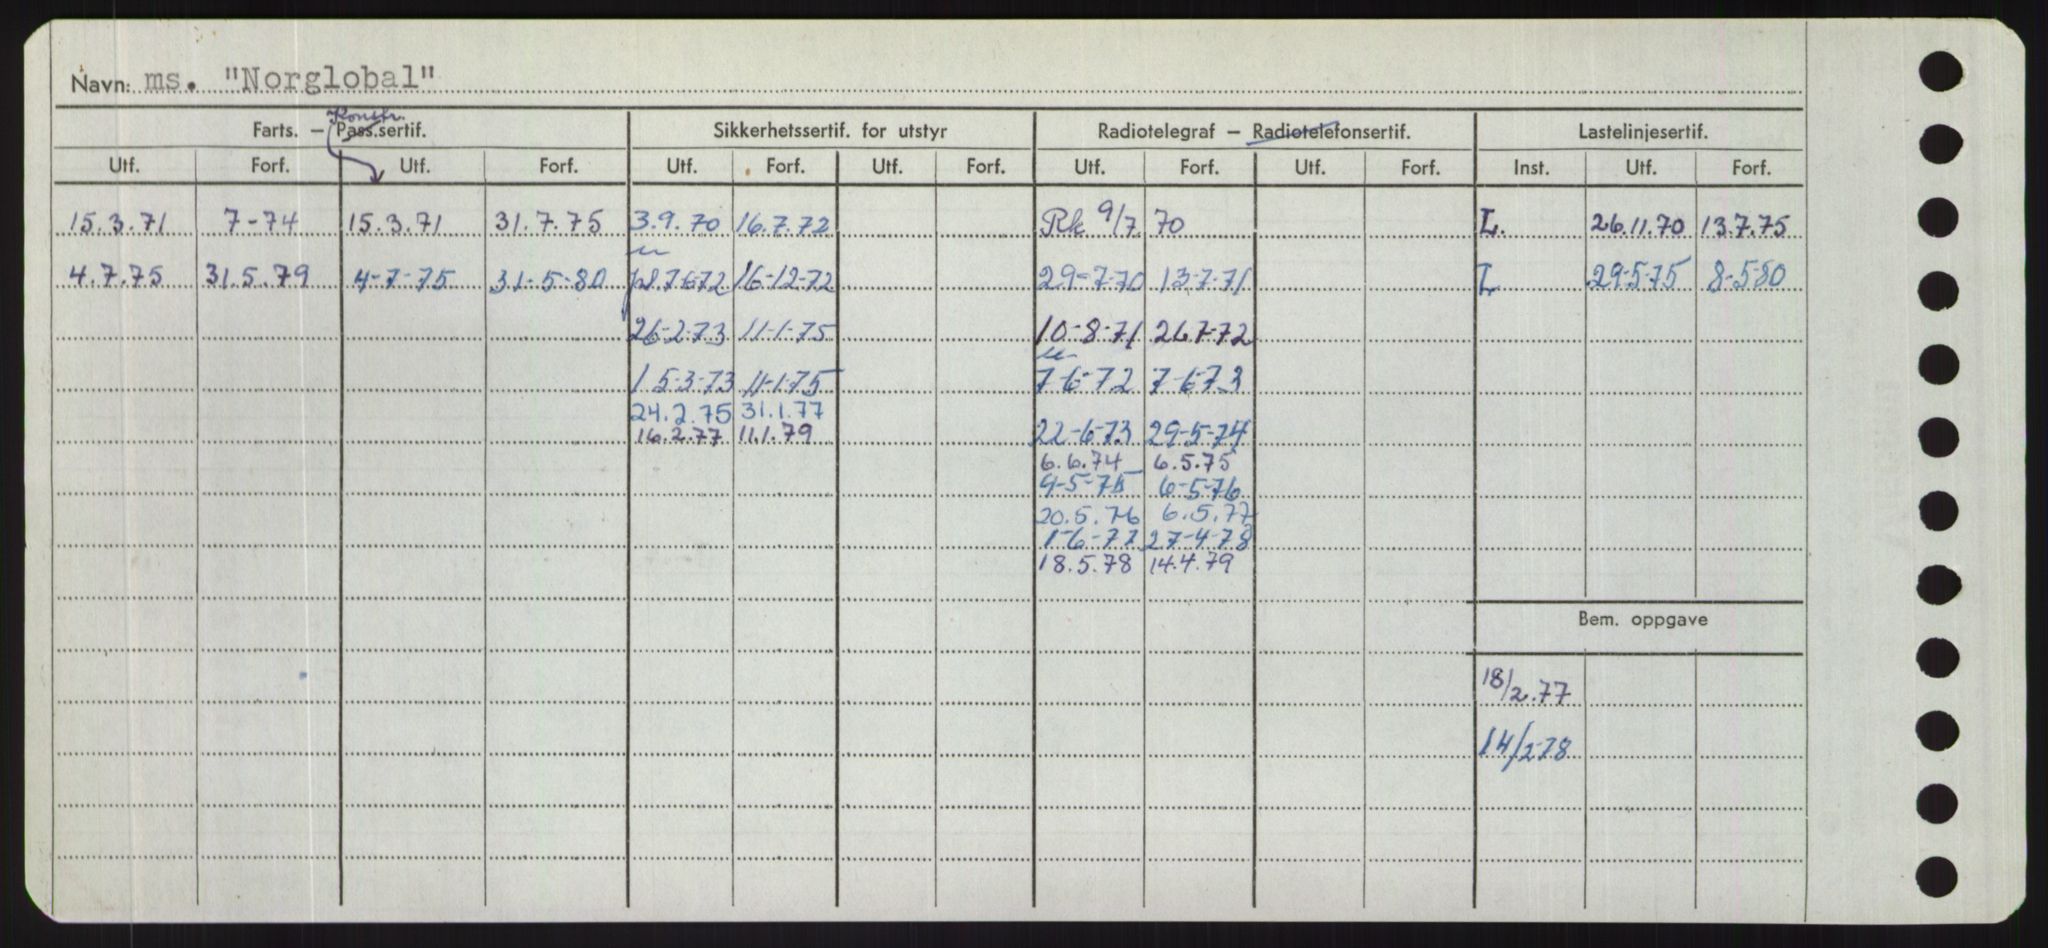 Navn: ms. "Norglobal"
Konstr.
Farts. – Pass.sertif. Sikkerhetssertif. for utstyr Radiotelegraf – Radiotelefonsertif. Lastelinjesertif.
Utf. Forf. Utf. Forf. Utf. Forf. Utf. Forf. Utf. Forf. Utf. Forf. Inst. Utf. Forf.
15.3.71 7-74 15.3.71 31.7.75 3.9.70 16.7.72 Rk 9/7 70 L. 26.11.70 13.7.75
4.7.75 31.5.79 4-7-75 31-5-80 7-6-72 16-12-72 29-7-70 13-7-71 L 29-5-75 8-5-80
26-2-73 11-1-75 10-8-71 26 7-72
15-3-73 11-1-75 7-6-72 7-6-73
24.2.75 31.1.77
16.2.77 11.1.79 22-6-73 29-5-74
6.6.74 6.5.75
9-5-75 6-5-76
20.5.76 6.5.77
1-6-77 27-4-78
18.5.78 14.4.79
Bem. oppgave
18/2.77
14/2-78